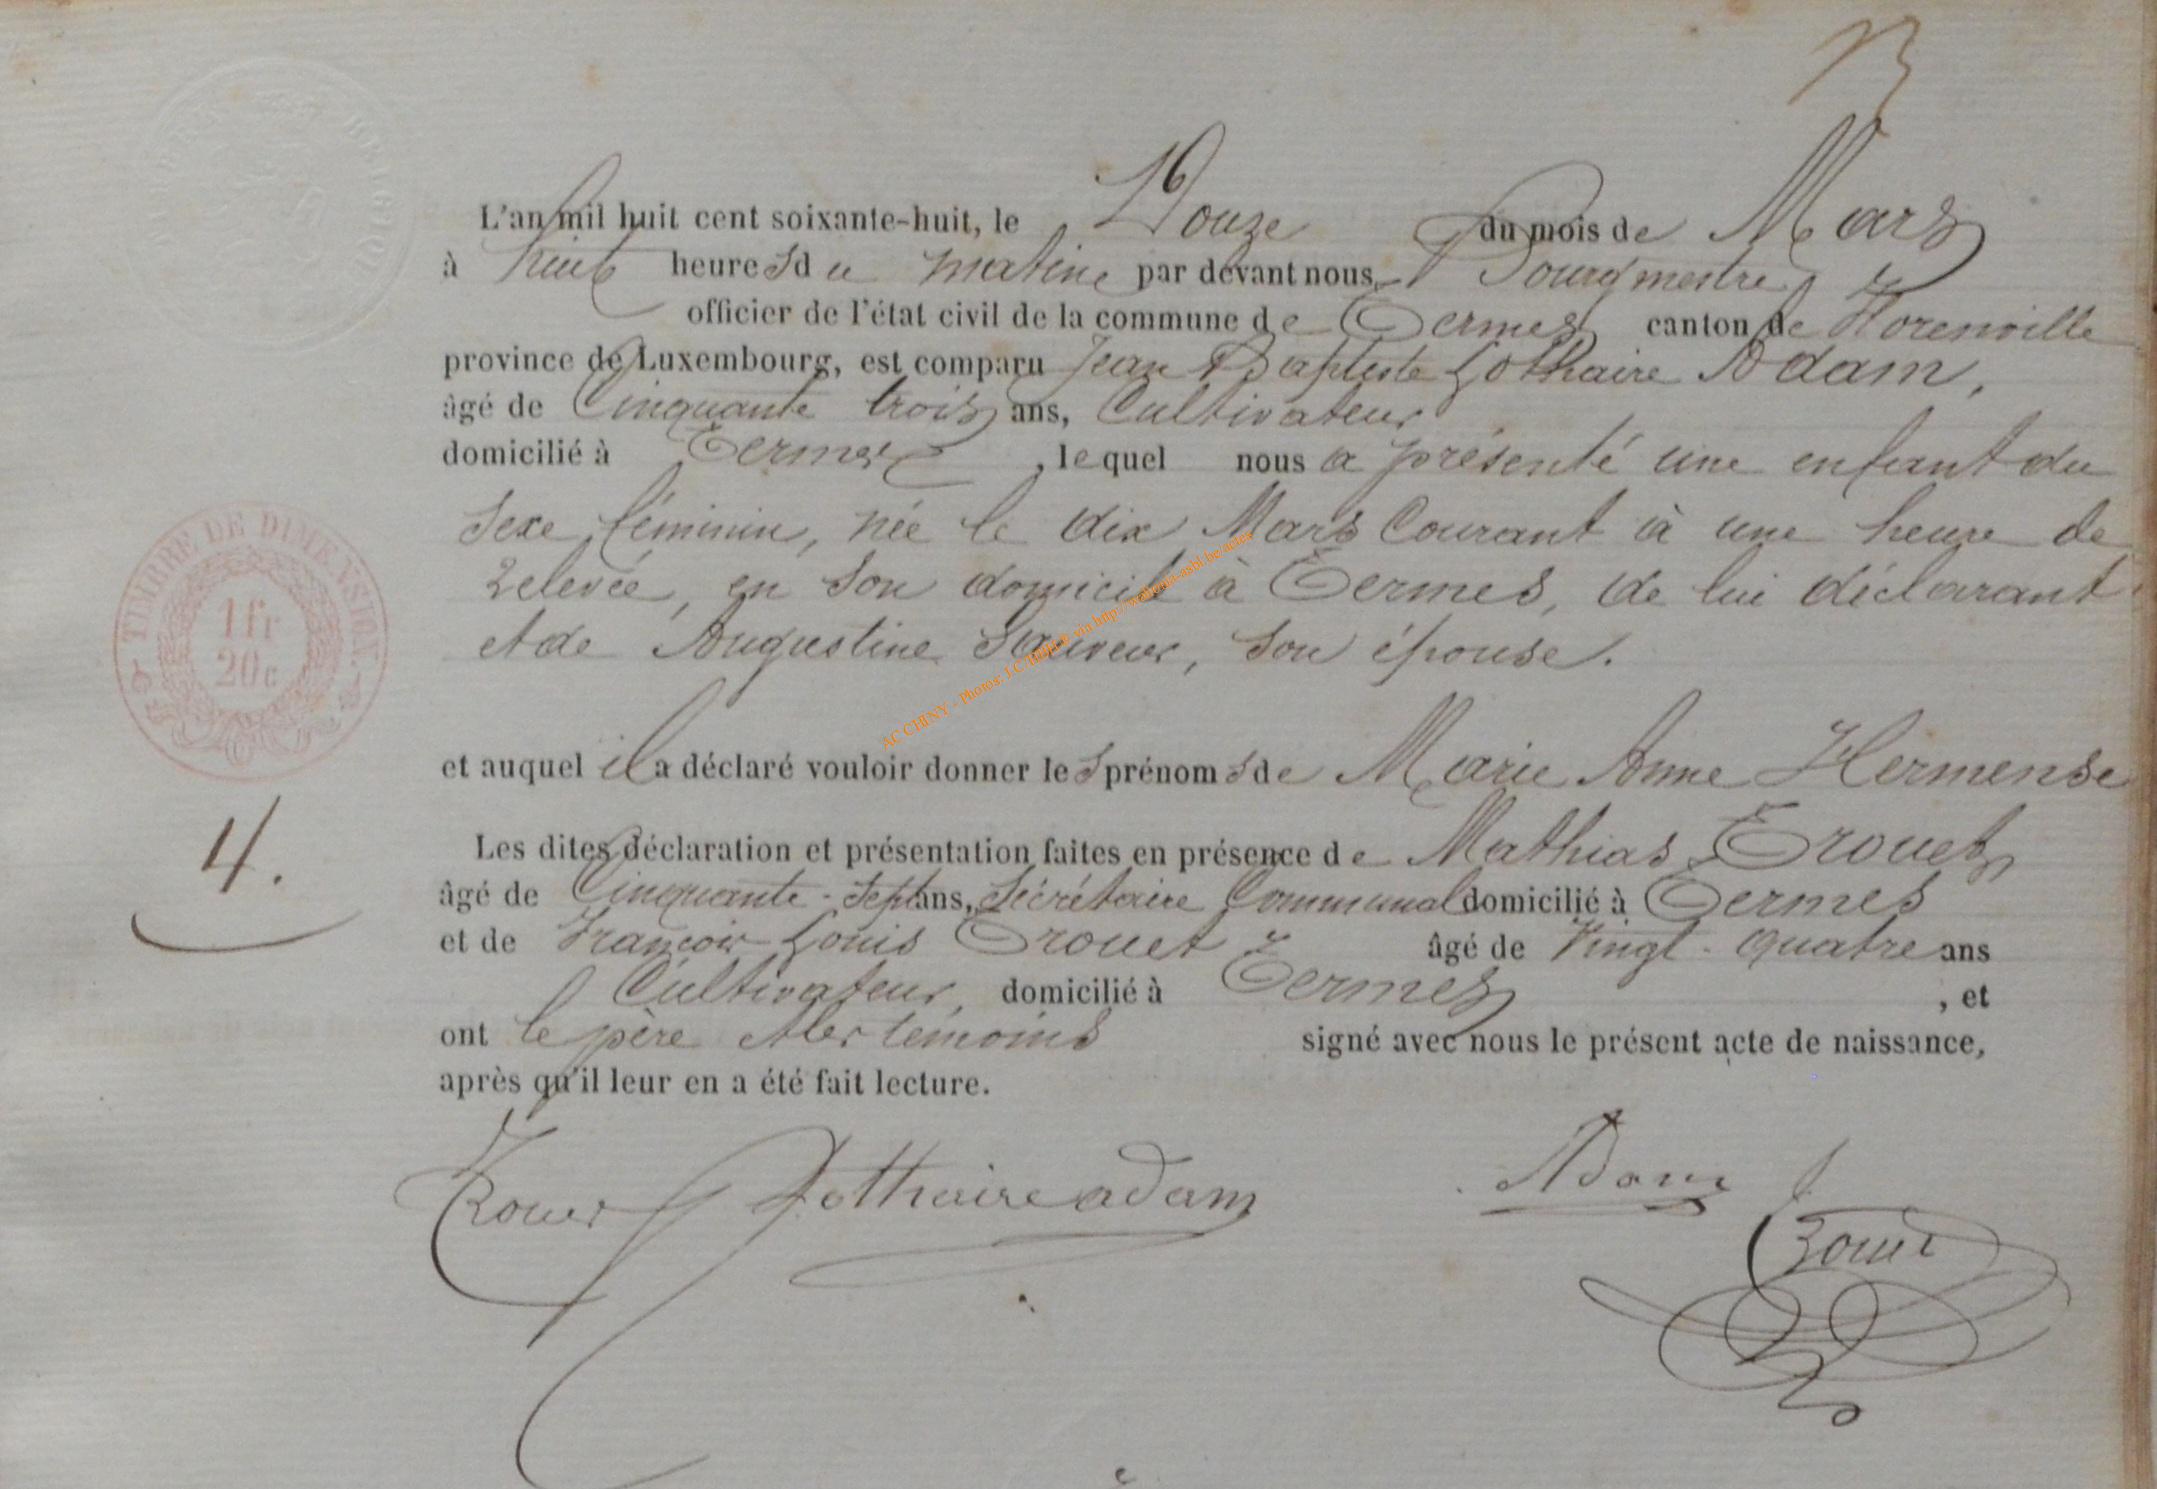 L'an mil huit cent soixante-huit, le Douze du mois de Mars
à huit heures du matin, par devant nous, Bourgmestre,
officier de l'état civil de la commune de Termes, canton de Florenville
province de Luxembourg, est comparu Jean Baptiste Lothaire Adam,
âgé de Cinquante trois ans, Cultivateur
domicilié à Termes, lequel nous a présenté une enfant du
Sexe féminin, née le dix Mars Courant à une heure de
relevée, en son domicile à Termes, de lui déclarant
et de Augustine Sauveur, son épouse.
et auquel il a déclaré vouloir donner les prénoms de Marie Anne Hermense
Les dites déclaration et présentation faites en présence de Mathias Trouet
âgé de Cinquante-Sept ans, Sécrétaire Communal domicilié à Termes
et de François Louis Trouet âgé de Vingt-quatre ans
Cultivateur, domicilié à Termes, et
ont le père et les témoins signé avec nous le présent acte de naissance,
après qu'il leur en a été fait lecture.
Lothaire adam
Adam
TIMBRE DE DIMENSION.
1 fr
20c
4.
AC CHINY - Photos: